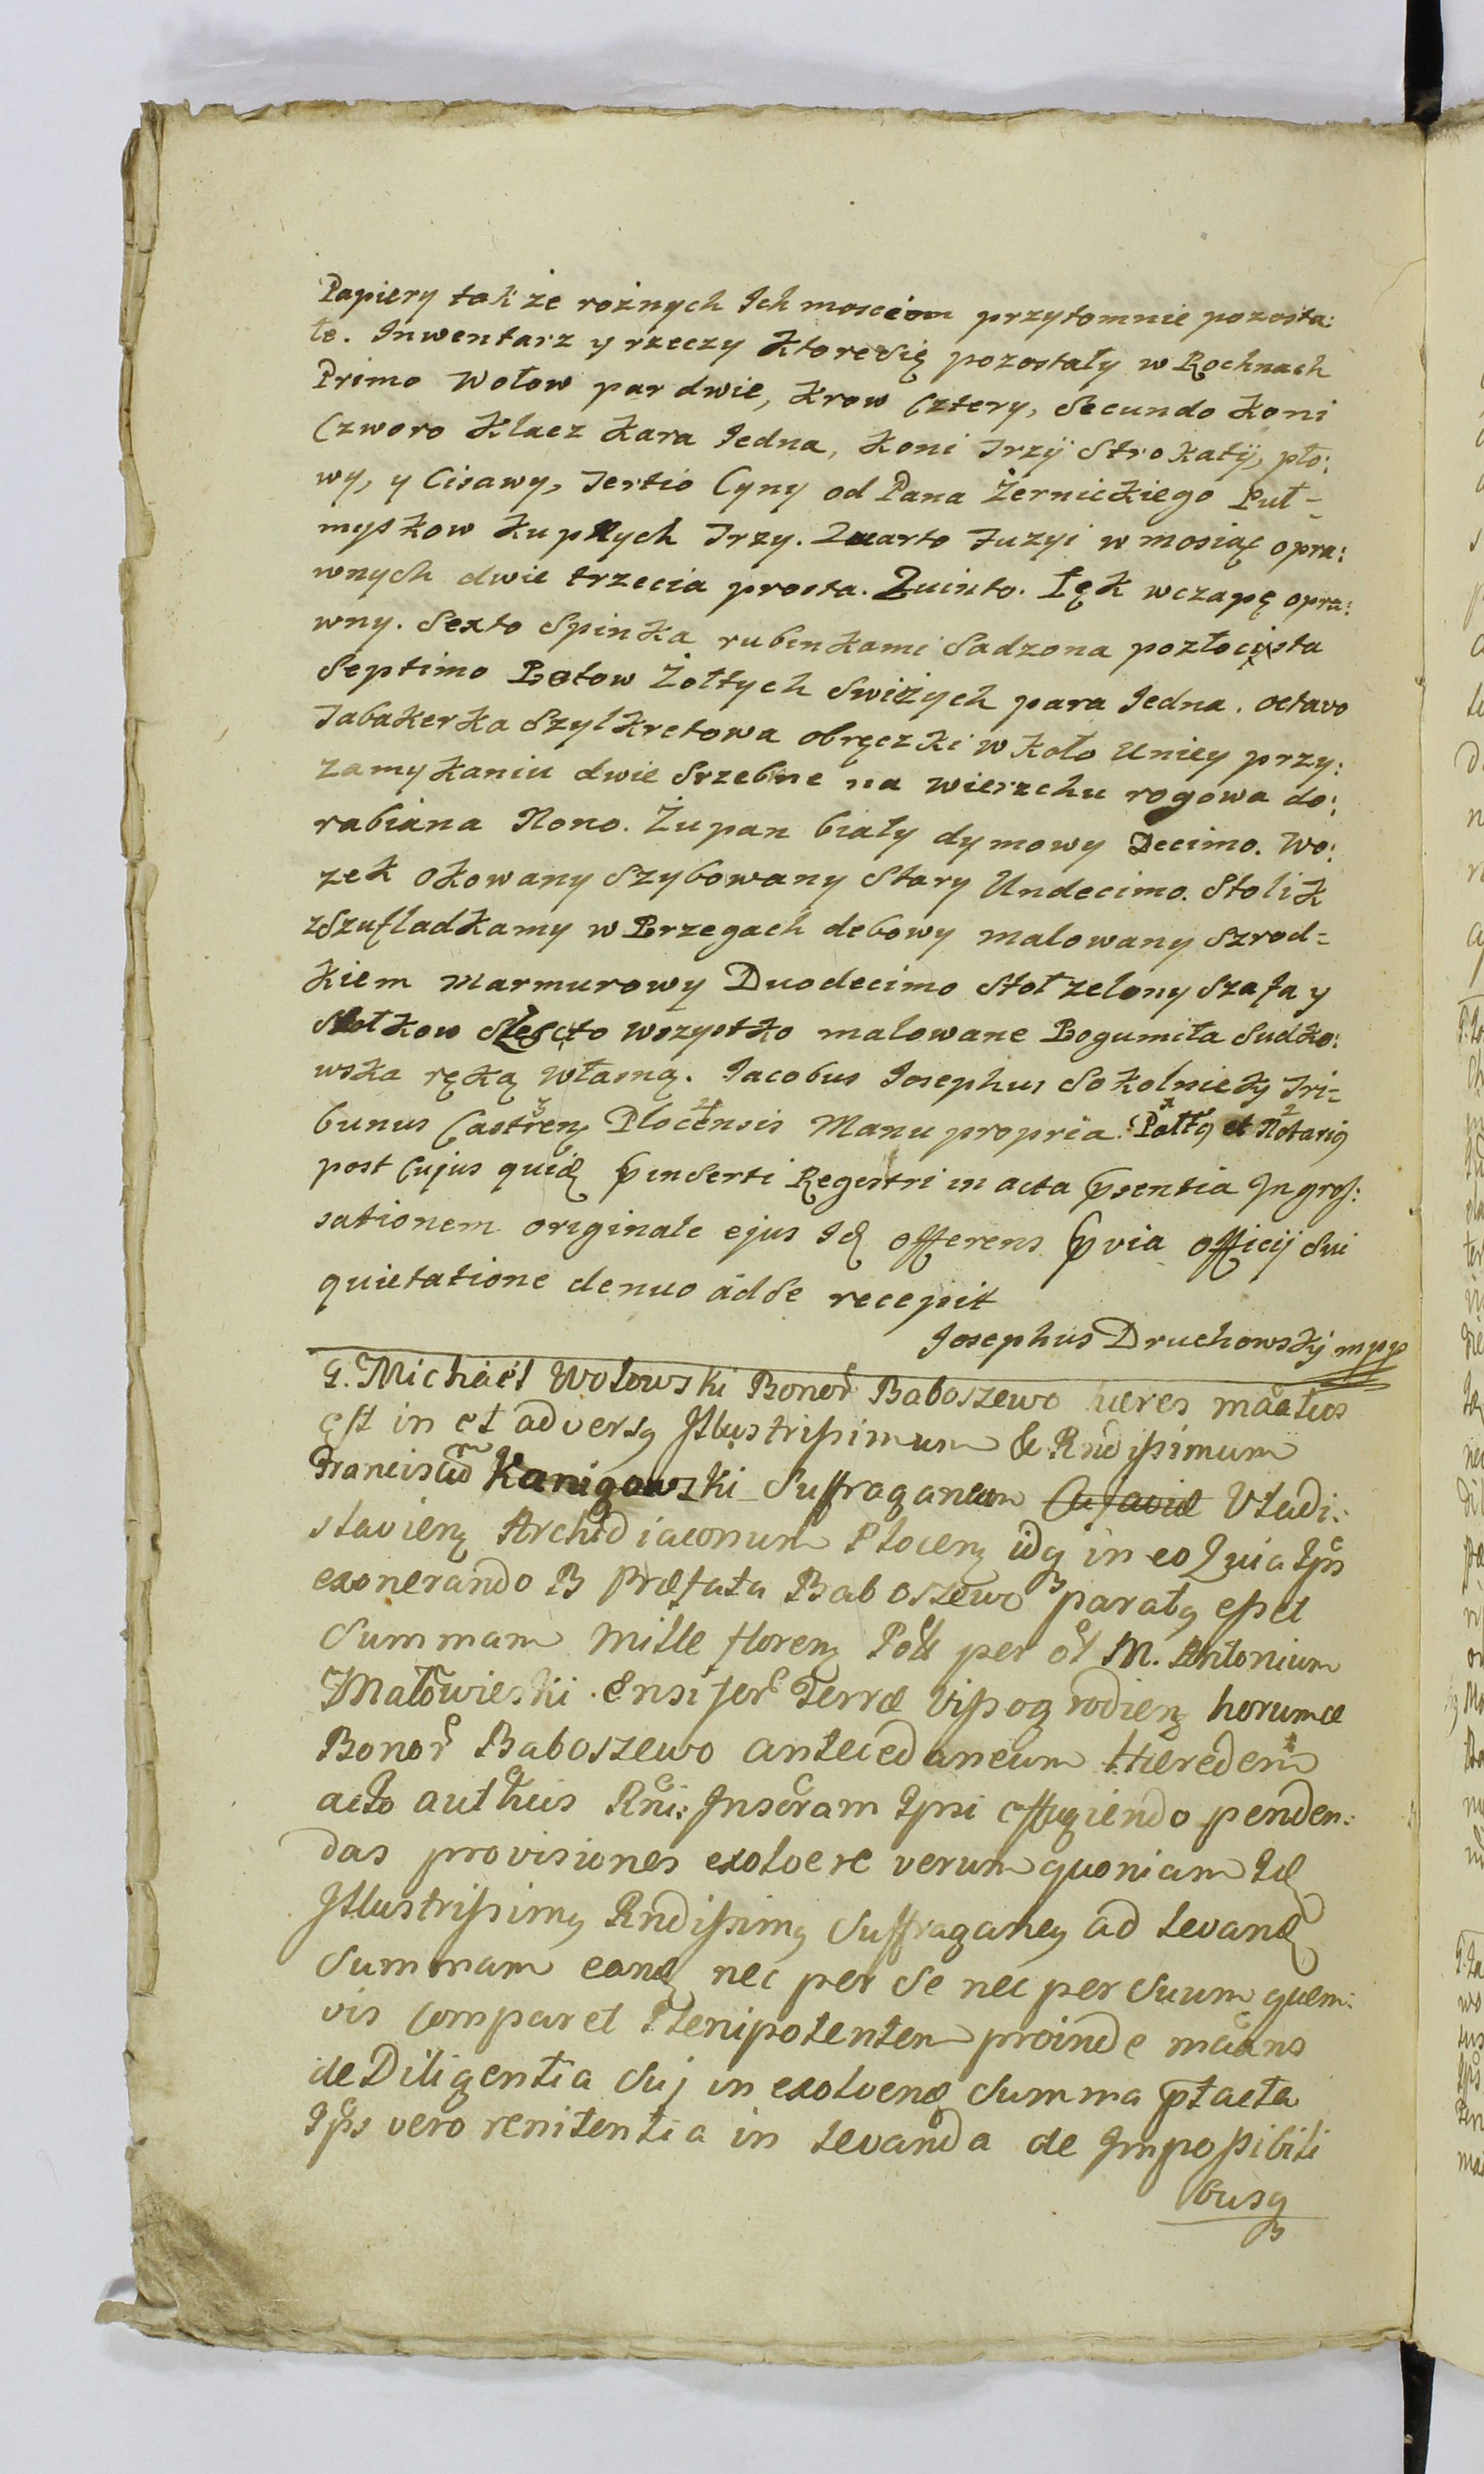 Papiery także rożnych Ich mosciom przytomnie pozosta:
łe. Inwentarz y rzeczy ktore się pozostały w Rochnach
Primo Wołow par dwie, Krow Cztery, Secundo Koni
Czworo Klacz Kara Iedna, Koni Trzÿ Strokatÿ, pło:
wy, y Cisawy, Tertio Cyny od Pana Żernickiego Puł=
myskow kupnych Trzy. Quarto Fuzyi w mosiąc opra:
wnych dwie trzecia prosta. Quinto. Łęk wczapę opra:
wny. Sexto Spinka rubinkami Sadzona pozłocista
Septimo Botow Żołtych Swiżych para Iedna. octavo
Tabakerka Szylkretowa obręczki w koło Uniey przy:
zamykaniu dwie Srzebne na wierzchu rogowa do:
rabiana Nono. Żupan biały dymowy Decimo. Wo:
zek okowany Szybowany Stary Undecimo. Stolik
zSzufladkamy w Brzegach debowy malowany Szrod=
kiem Marmurowy Duodecimo Stoł zelony Szafa y
Stołkow wszystko malowane Bogumiła Sudko:
wska ręką własną. Iacobus Iosephus Sokolnicky Tri=
bunus Castren Plocensis Manu propria. et Notariq
post Cujus quid pinserti Regestri in acta psentia Ingros:
sationem originale ejus Id offerens pvia officij Sui
quietatione denuo ad Se recepit
Josephus Druchowskÿ mpp
G. Michaël Wołowski Bonor Baboszewo hæres maatus
est in et adversq Illustrissimum & Rndissimum
Franciscum Kanigowski Suffraganeum Cujaviæ Vladi:
slavien Archidiaconum Plocen idq in eo Quia Ipsi
exonerando B præfata Baboszewo paratq esset
Summam Mille floren Poll per ol M. Antonium
Małowieski Ensifer Terræ Vissogrodien horumce
Bonor Baboszewo antecedaneum Hæredem
acto authcis Rni: Inscram Ipsi effugiendo penden:
das provisiones exolvere verum quoniam Id
Illustrissimq Rndissimq Suffraganeq ad levand
Summam eand nec per Se nec per Suum quem:
vis comparet Plenipotentem proinde maans
de Diligentia Suj in exolvend Summa ptacta
Ipsi vero renitentia in levanda de Impossibili
busq